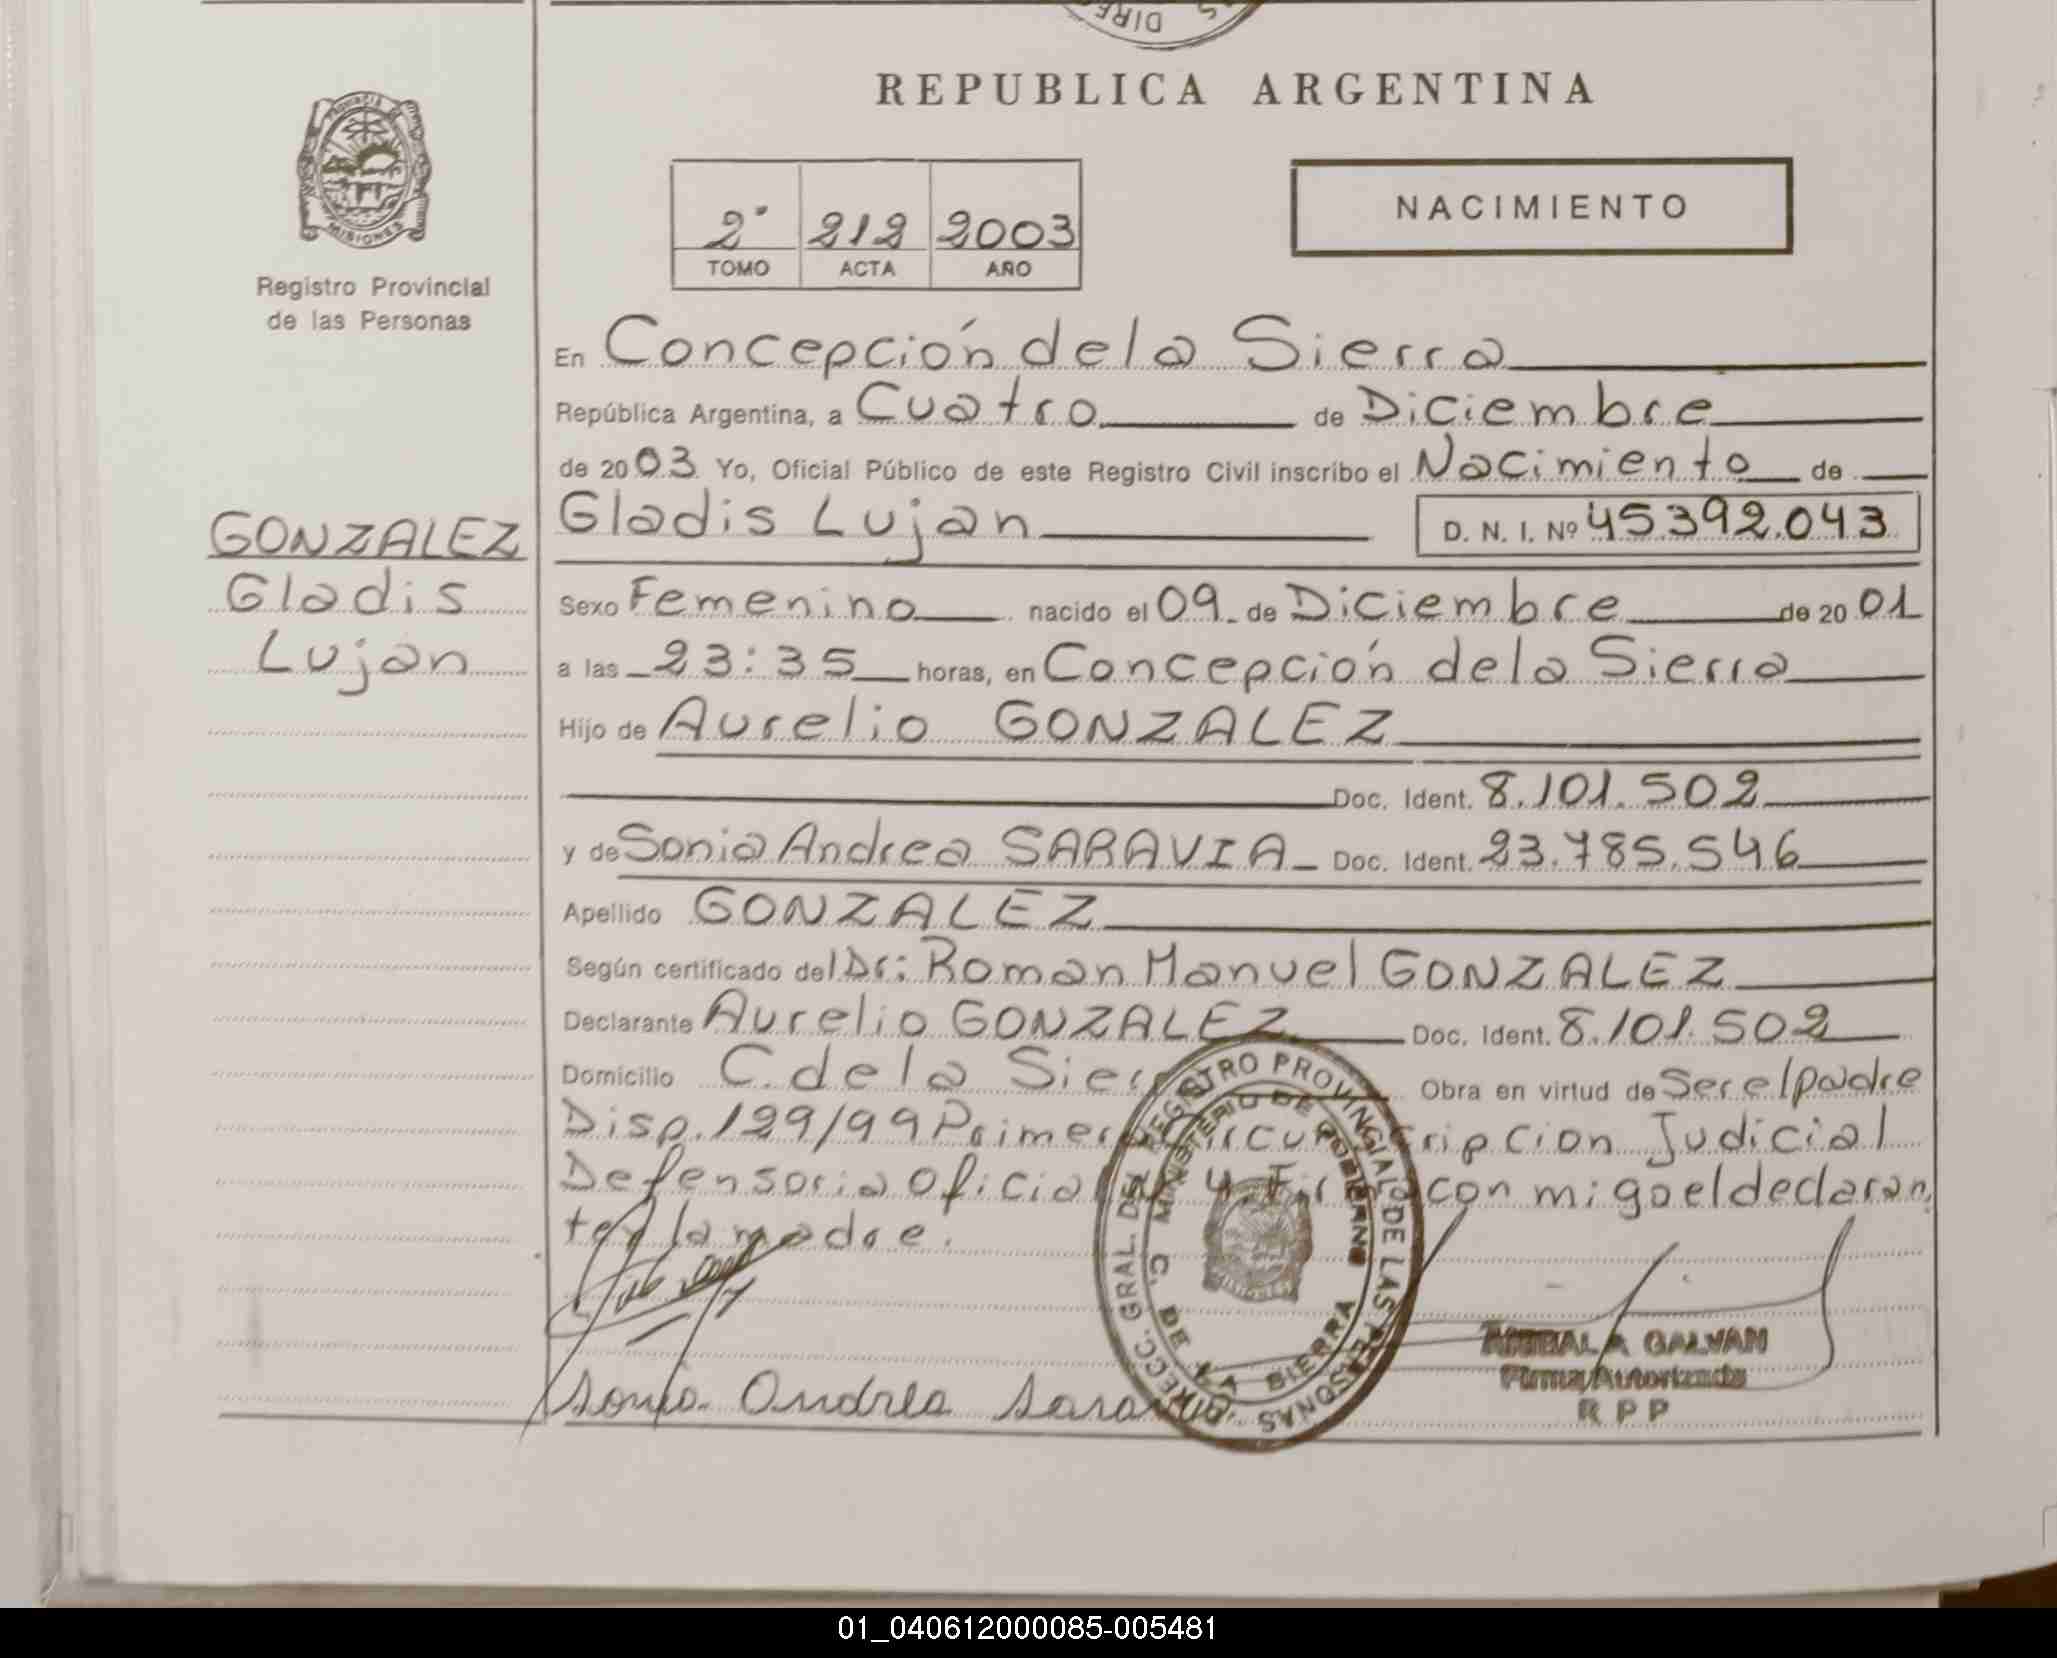 REPUBLICA ARGENTINA
PROVINCIA
MISIONES
Registro Provincial
de las Personas
2° 212 2003
TOMO ACTA AÑO
NACIMIENTO
GONZALEZ
Gladis
Lujan
En Concepción de la Sierra
República Argentina, a Cuatro de Diciembre
de 2003 Yo, Oficial Público de este Registro Civil inscribo el Nacimiento de
Gladis Lujan D. N. I. Nº 45.392.043
Sexo Femenino nacido el 09 de Diciembre de 2001
a las 23:35 horas, en Concepción de la Sierra
Hijo de Aurelio GONZALEZ
Doc. Ident. 8.101.502
y de Sonia Andrea SARAVIA Doc. Ident. 23.785.546
Apellido GONZALEZ
Según certificado del Dr: Roman Manuel GONZALEZ
Declarante Aurelio GONZALEZ Doc. Ident. 8.101.502
Domicilio C. de la Obra en virtud de Ser el padre
Disp. 129/99 Primera Circunscripcion Judicial
Defensoria Oficial con migo el declaran
te y la madre.
Sonia Andrea Saravia
DIRECC. GRAL. DEL REGISTRO PROVINCIAL DE LAS PERSONAS
MINISTERIO DE GOBIERNO
C. DE LA SIERRA
ANIBAL A GALVAN
Firma Autorizada
R P P
01_040612000085-005481